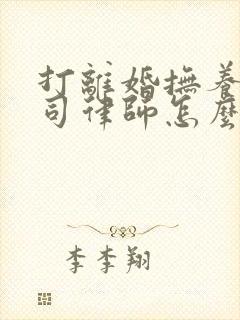 打離婚撫養
司律師怎麼
李李翔